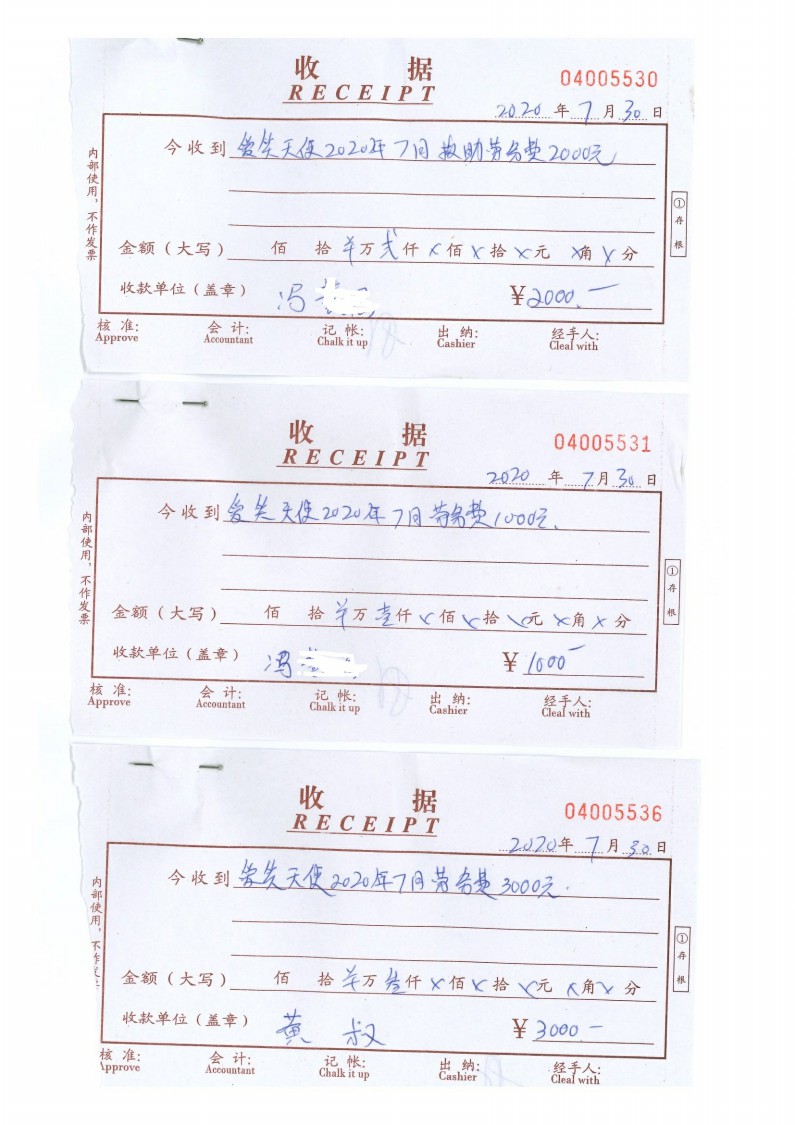 收 据
RECEIPT
04005530
2020年7月30日
今收到 爱笑天使2020年7月救助劳务费2000元
金额（大写） 佰 拾 羊万贰仟×佰×拾×元×角×分
收款单位（盖章） 冯 ¥2000.一
核 准: 会 计: 记 帐: 出 纳: 经手人:
Approve Accountant Chalk it up Cashier Cleal with
内部使用，不作发票
①存根
收 据
RECEIPT
04005531
2020年7月30日
今收到 爱笑天使2020年7月劳务费1000元.
金额（大写） 佰 拾 羊万壹仟×佰×拾×元×角×分
收款单位（盖章） 冯 ¥1000一
核 准: 会 计: 记 帐: 出 纳: 经手人:
Approve Accountant Chalk it up Cashier Cleal with
内部使用，不作发票
①存根
收 据
RECEIPT
04005536
2020年7月30日
今收到 爱笑天使2020年7月劳务费3000元.
金额（大写） 佰 拾 羊万叁仟×佰×拾×元×角×分
收款单位（盖章） 黄叔 ¥3000一
核 准: 会 计: 记 帐: 出 纳: 经手人:
Approve Accountant Chalk it up Cashier Cleal with
内部使用，不作发
①存根